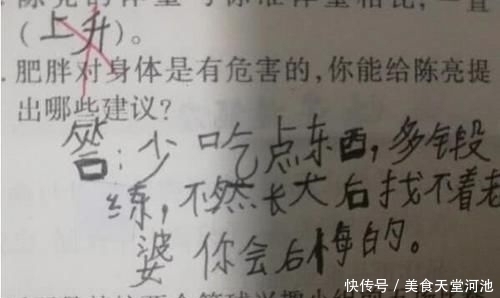 陈亮的体重与标准体重相比,一直
(上升)。
.肥胖对身体是有危害的,你能给陈亮提
出哪些建议?
答:少吃点东西,多锻
练,不然长大后找不着老
婆你会后悔的。
快传号/美食天堂河池